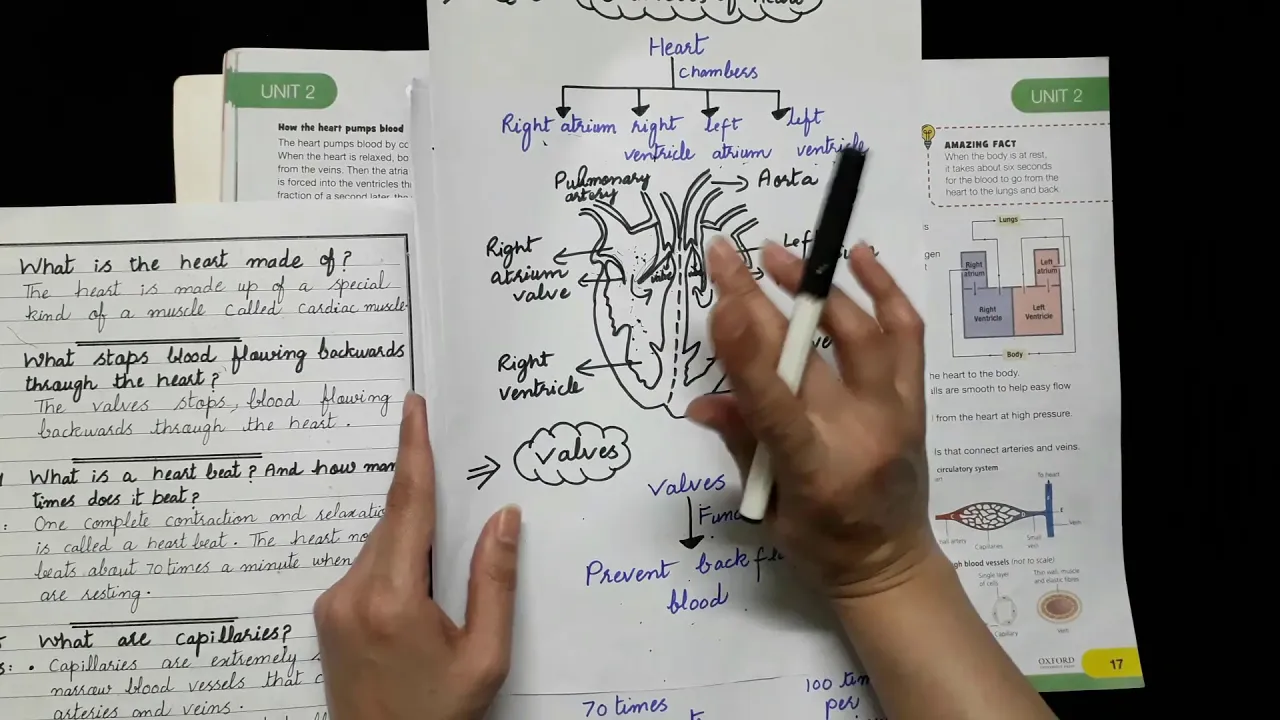 Heart
chambers
Right atrium right left left
ventricle atrium ventricle
Pulmonary
artery
Aorta
Right
atrium
valve
Right
ventricle
valves
valves
Prevent back
blood
70 times
100
per
UNIT 2
How the heart pumps blood
The heart pumps blood by
When the heart is relaxed,
from the veins. Then the
is forced into the ventricles
fraction of a second later,
What is the heart made of?
The heart is made up of a special
kind of a muscle called cardiac muscle.
What stops blood flowing backwards
through the heart?
The valves stops, blood flowing
backwards through the heart.
What is a heart beat? And how
times does it beat?
One complete contraction and
is called a heart beat. The heart
beats about 70 times a minute when
are resting.
What are capillaries?
• Capillaries are extremely
narrow blood vessels that
arteries and veins.
UNIT 2
AMAZING FACT
When the body is at rest,
it takes about six seconds
for the blood to go from the
heart to the lungs and back.
Lungs
Right
atrium
Left
atrium
Right
Ventricle
Left
Ventricle
Body
heart to the body.
are smooth to help easy flow
from the heart at high pressure.
that connect arteries and veins.
circulatory system
To heart
artery
Capillaries
Small
vein
Vein
blood vessels (not to scale)
Single layer
of cells
Thin wall, muscle
and elastic fibres
Capillary
Vein
OXFORD
17